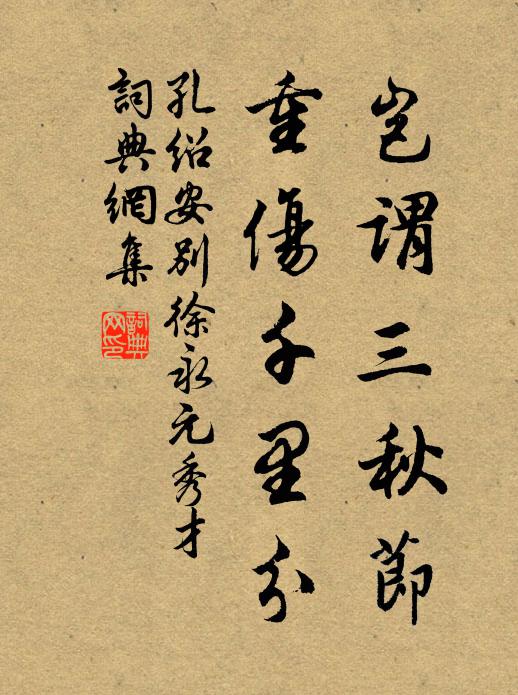 岂谓三秋節
重傷千里分
孔绍安别徐永元秀才
詞典網集
詞典网印